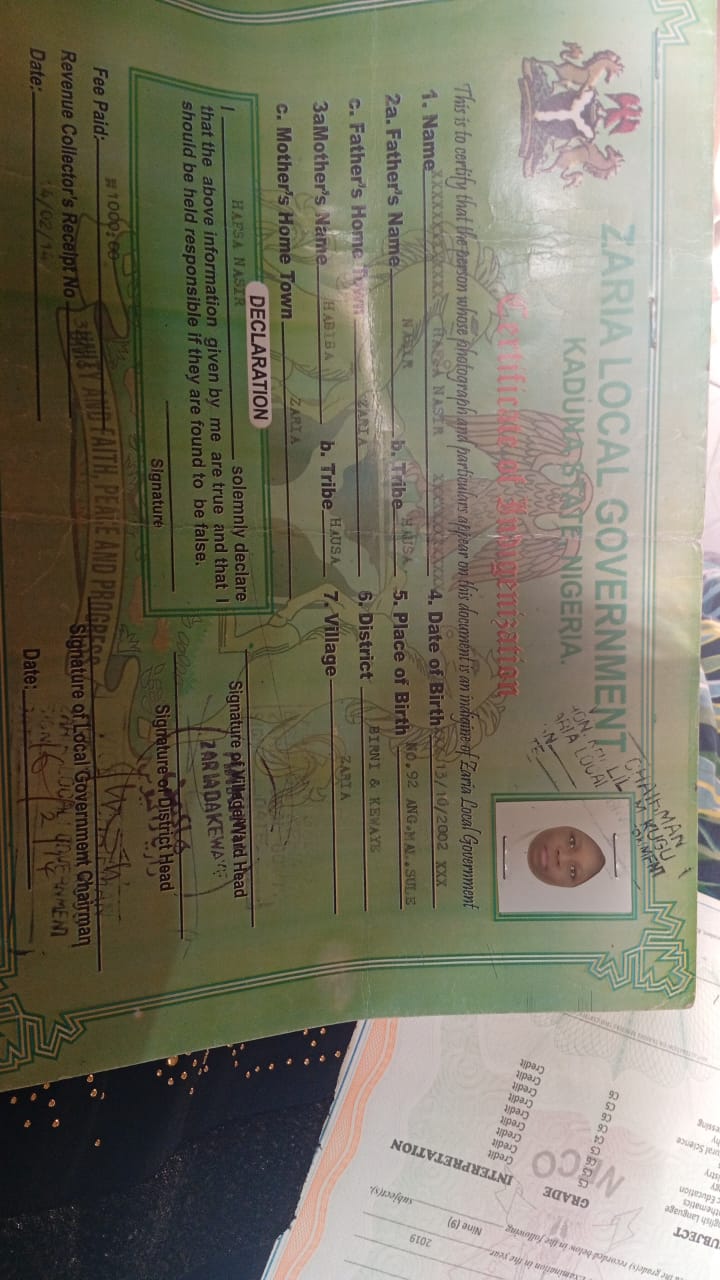 ZARIA LOCAL GOVERNMENT
KADUNA STATE, NIGERIA.
Certificate of Indigenization
This is to certify that the person whose photograph and particulars appear on this document is an indigine of Zaria Local Government
1. Name XXXXXXXXXXXXX HAFSA NASIR XXXXXXXXXXXXX 4. Date of Birth XXX 13/10/2002 XXX
2a. Father's Name NASIR b. Tribe HAUSA 5. Place of Birth NO.92 ANG.MAL.SULE
c. Father's Home Town ZARIA 6. District BIRNI & KEWAYE
3a Mother's Name HABIBA b. Tribe HAUSA 7. Village ZARIA
c. Mother's Home Town ZARIA
DECLARATION
I HAFSA NASIR solemnly declare
that the above information given by me are true and that I
should be held responsible if they are found to be false.
Signature
Signature of Village/Ward Head
Signature of District Head
Fee Paid:- ₦1000.00
Revenue Collector's Receipt No
Date:- 14/02/14
Signature of Local Government Chairman
Date:
UNITY AND FAITH, PEACE AND PROGRESS
CHAIRMAN
ZARIA DA KEWAYE
NECO
SUBJECT
GRADE
INTERPRETATION
English Language
C5
C6
C6
C6
C5
C6
Credit
Credit
Credit
Credit
Credit
Credit
Credit
Credit
Nine (9)
subject(s).
2019
Examination in the year
grade(s) recorded below in the following